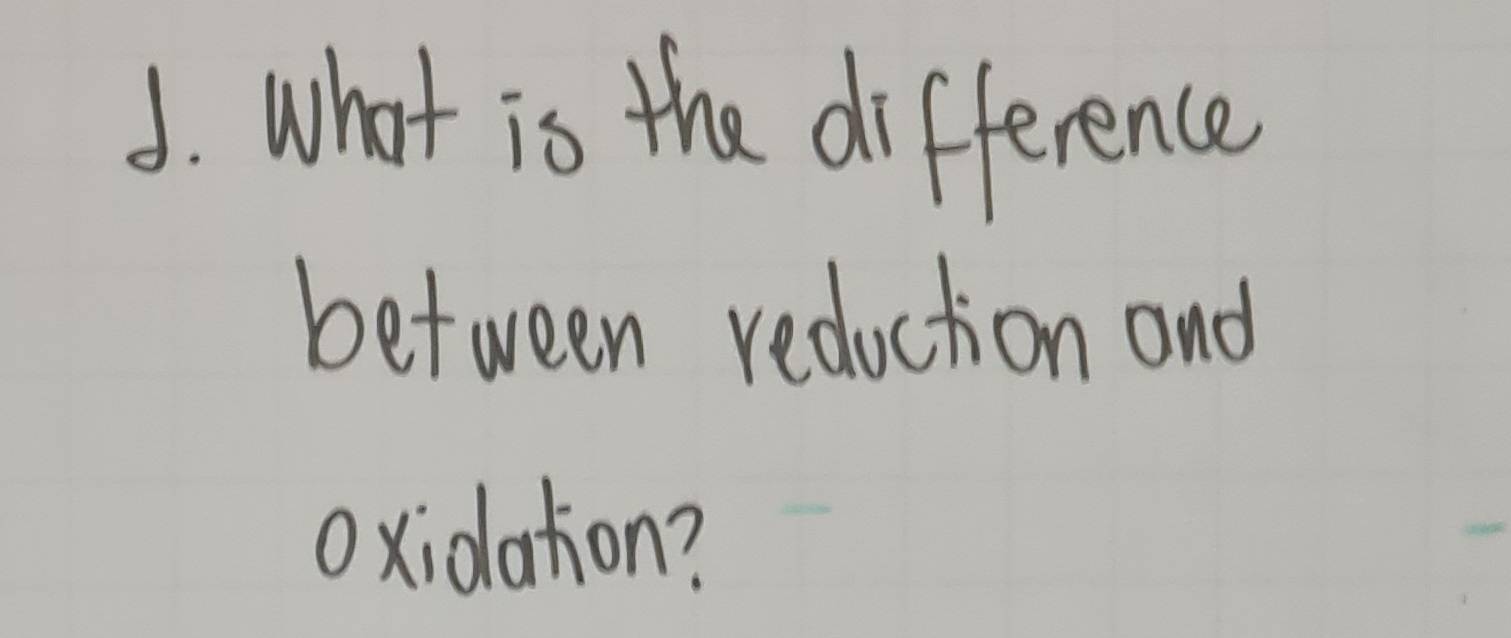 1. What is the difference
between reduction and
oxidation?